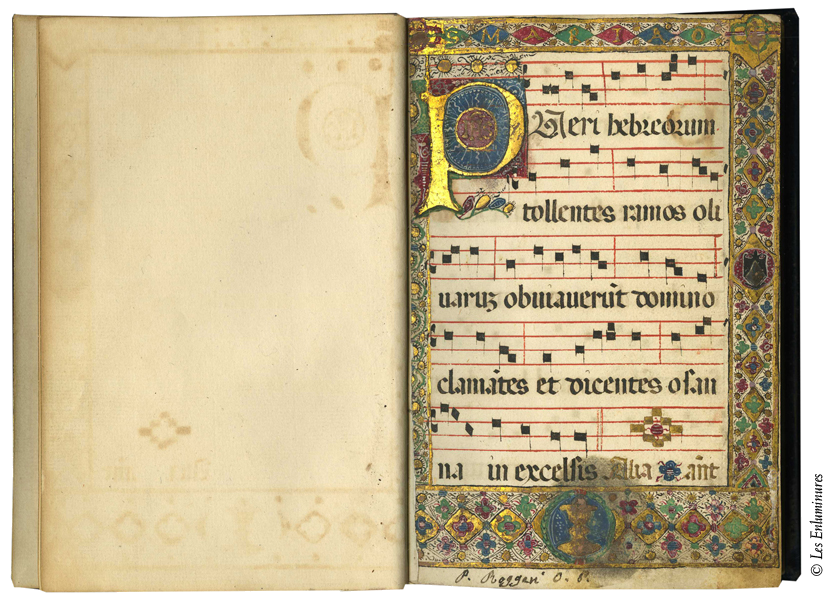 Pueri hebreorum
tollentes ramos oli
uaruz obuiauerūt domino
clamātes et dicentes oſan
na in excelſis Alia ānt
© Les Enluminures